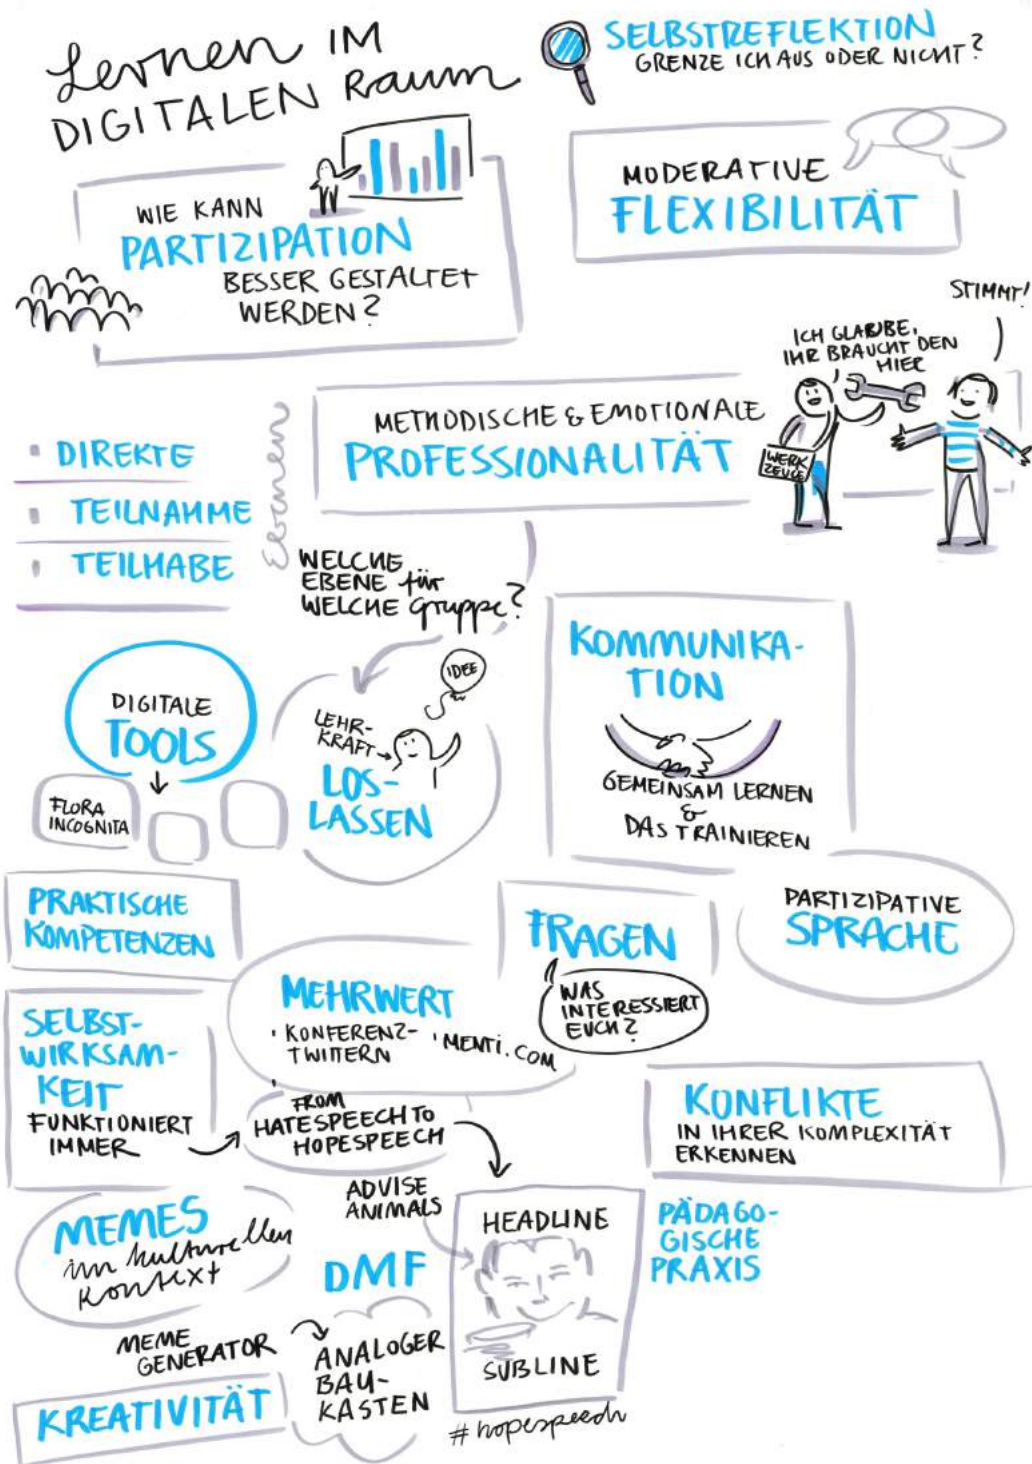 Lernen IM
DIGITALEN Raum
SELBSTREFLEKTION
GRENZE ICH AUS ODER NICHT?
WIE KANN
PARTIZIPATION
BESSER GESTALTET
WERDEN?
MODERATIVE
FLEXIBILITÄT
STIMMT!
ICH GLAUBE,
IHR BRAUCHT DEN
HIER
WERK
ZEUGE
METHODISCHE & EMOTIONALE
PROFESSIONALITÄT
DIREKTE
TEILNAHME
TEILHABE
Ebenen
WELCHE
EBENE für
WELCHE Gruppe?
DIGITALE
TOOLS
FLORA
INCOGNITA
IDEE
LEHR-
KRAFT
LOS-
LASSEN
KOMMUNIKA-
TION
GEMEINSAM LERNEN
&
DAS TRAINIEREN
PRAKTISCHE
KOMPETENZEN
FRAGEN
WAS
INTERESSIERT
EUCH?
PARTIZIPATIVE
SPRACHE
MEHRWERT
· KONFERENZ-
TWITTERN
· MENTI.COM
SELBST-
WIRKSAM-
KEIT
FUNKTIONIERT
IMMER
FROM
HATESPEECH TO
HOPESPEECH
KONFLIKTE
IN IHRER KOMPLEXITÄT
ERKENNEN
MEMES
im kulturellen
Kontext
ADVISE
ANIMALS
DMF
HEADLINE
SUBLINE
#hopespeech
PÄDAGO-
GISCHE
PRAXIS
MEME
GENERATOR
ANALOGER
BAU-
KASTEN
KREATIVITÄT